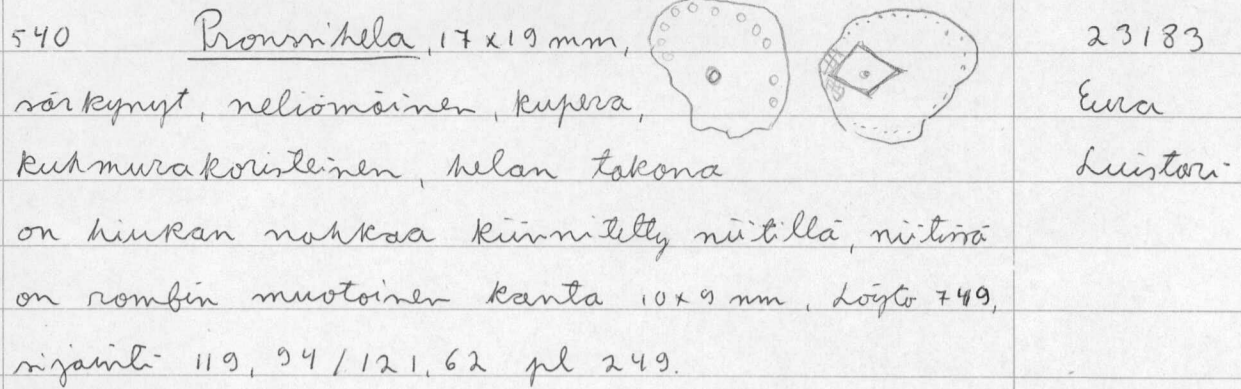 540 Pronssihela, 17 x 19 mm, 23183
särkynyt, neliömäinen, kupera, Eura
kuhmurakoristeinen, helan takana Luistari
on hiukan nahkaa kiinnitetty niitillä, niitissä
on rombin muotoinen kanta 10 x 9 mm, Löytö 749,
sijainti 119,94/121,62 pl 249.